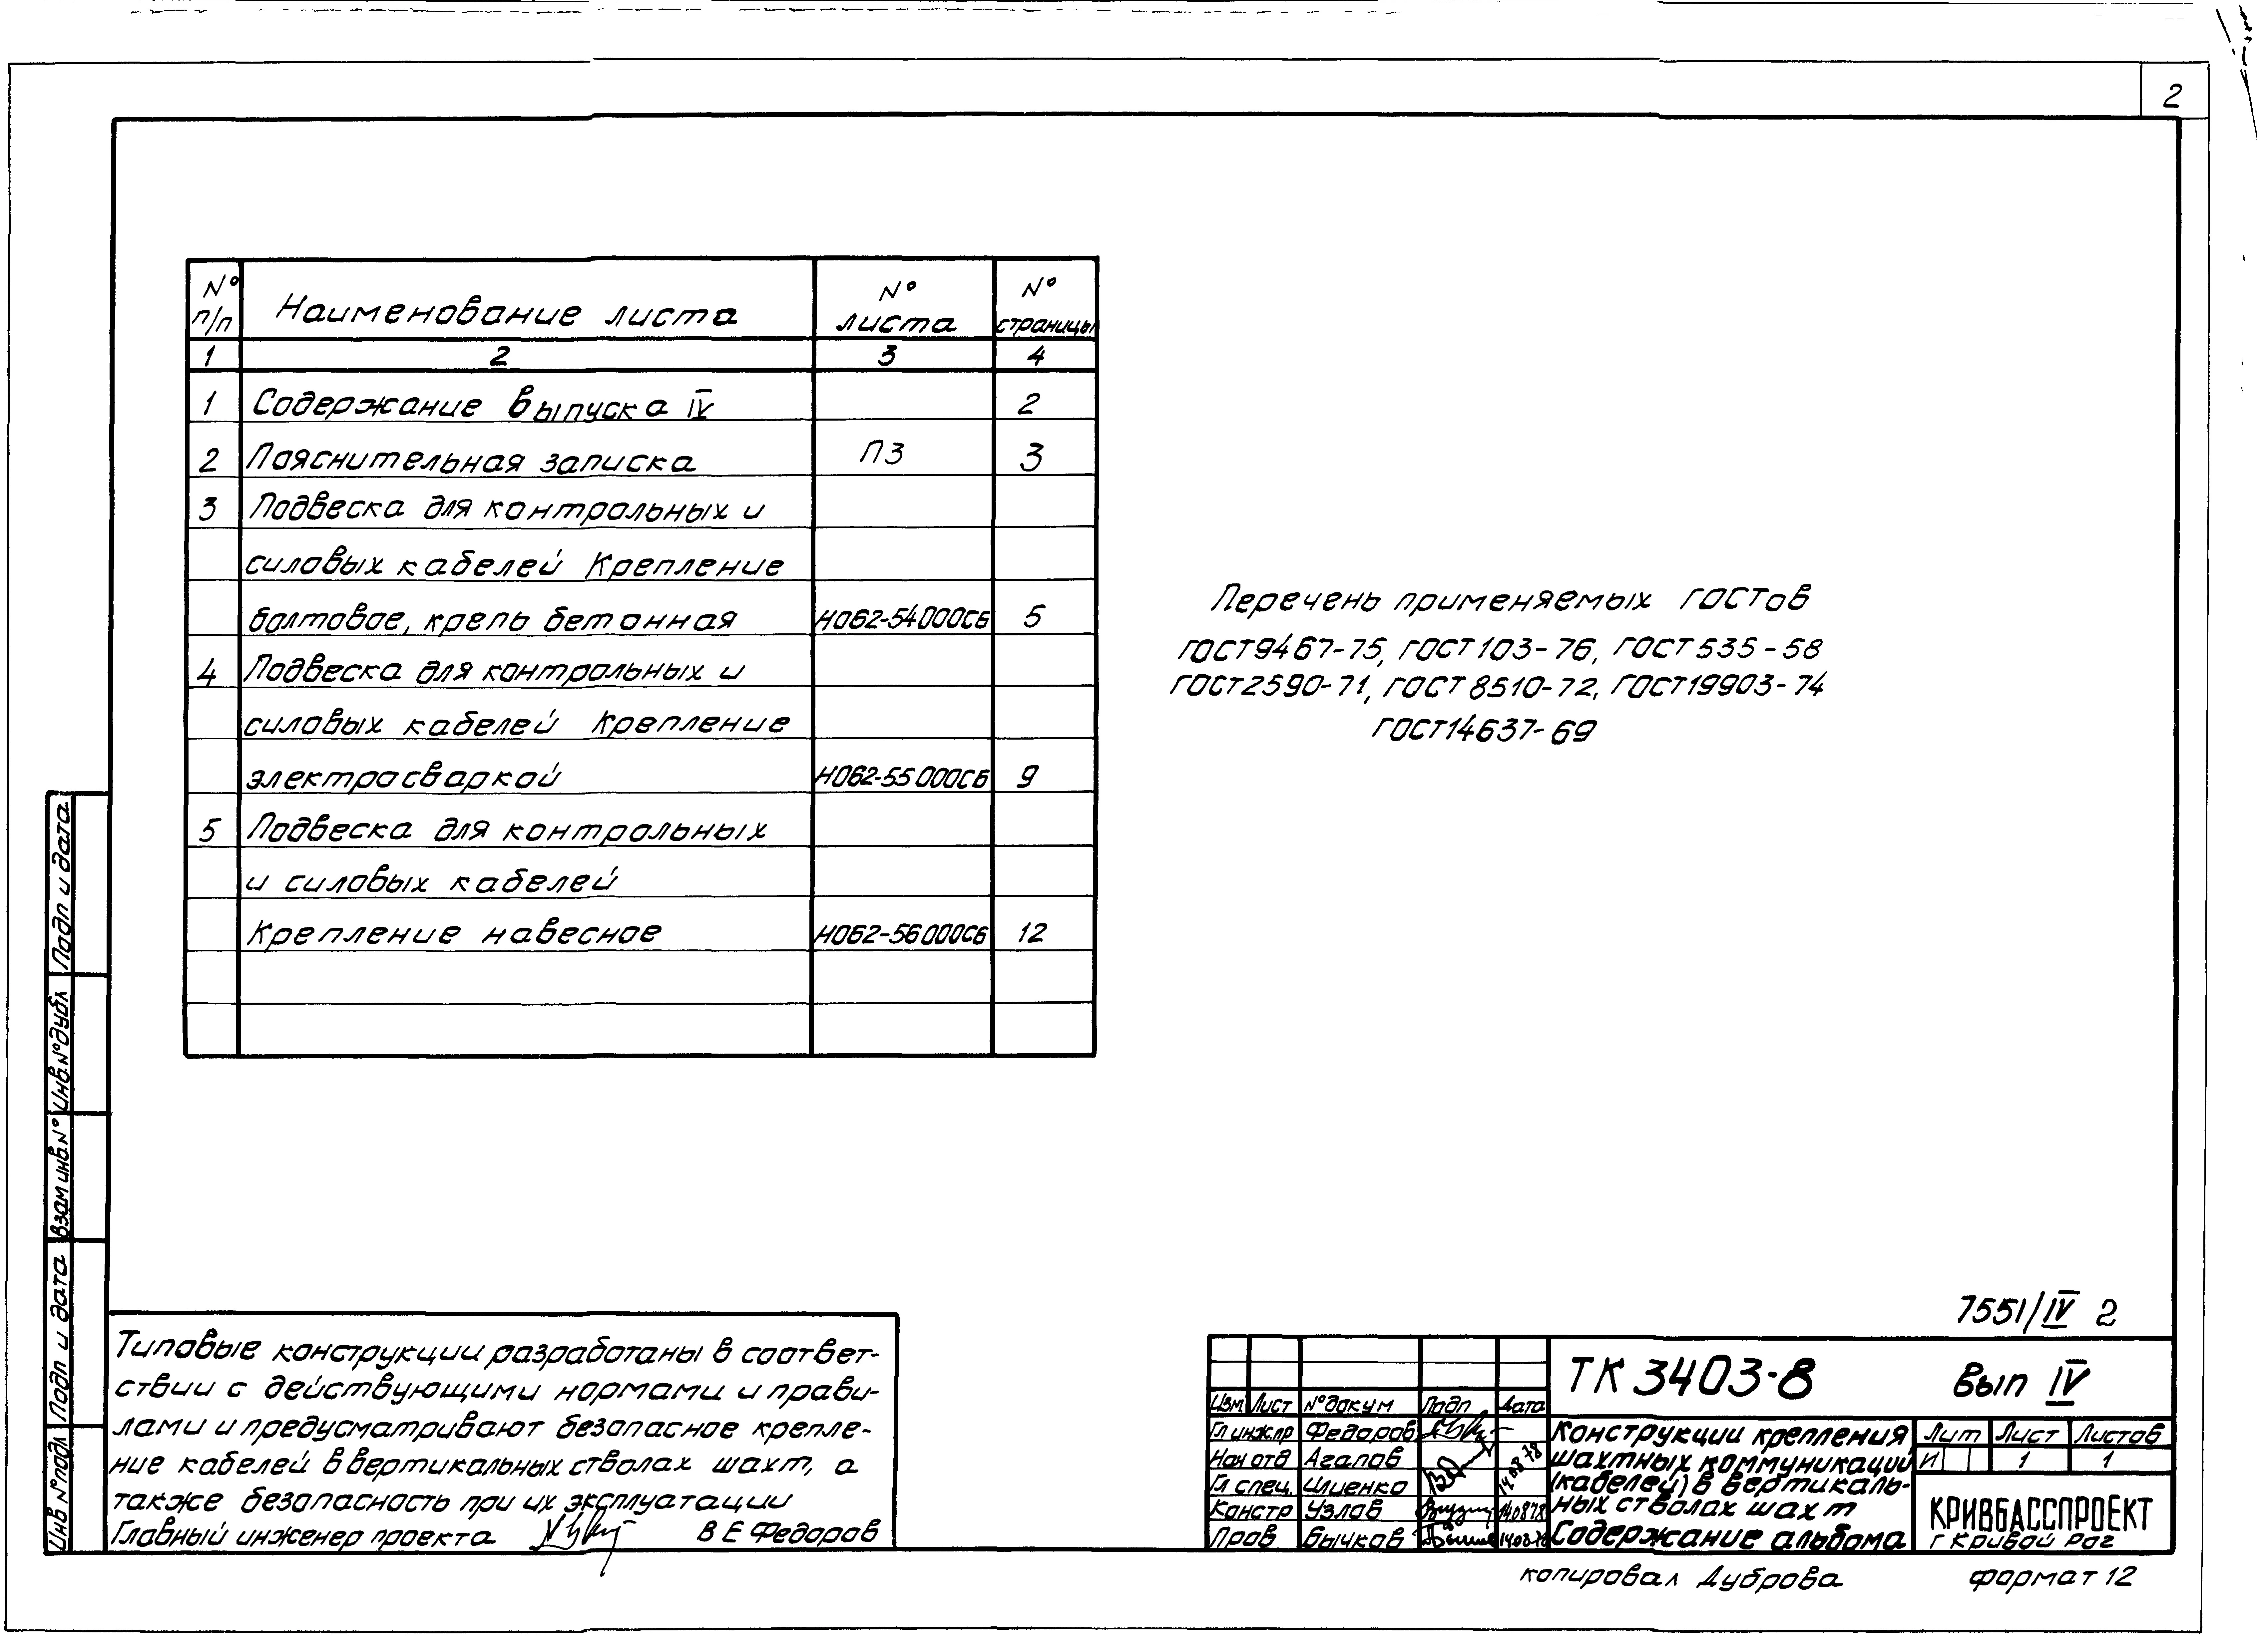 2
№ п/п Наименование листа № листа № страницы
1 2 3 4
1 Содержание выпуска IV 2
2 Пояснительная записка ПЗ 3
3 Подвеска для контрольных и
силовых кабелей Крепление
болтовое, крепь бетонная Н062-54000СБ 5
4 Подвеска для контрольных и
силовых кабелей Крепление
электросваркой Н062-55000СБ 9
5 Подвеска для контрольных
и силовых кабелей
Крепление навесное Н062-56000СБ 12
Перечень применяемых гостов
ГОСТ9467-75, ГОСТ103-76, ГОСТ535-58
ГОСТ2590-71, ГОСТ8510-72, ГОСТ19903-74
ГОСТ14637-69
Подп и дата
Инв.№дубл
Взам инв.№
Подп и дата
Инв №подл
Типовые конструкции разработаны в соответ-
ствии с действующими нормами и прави-
лами и предусматривают безопасное крепле-
ние кабелей в вертикальных стволах шахт, а
также безопасность при их эксплуатации
Главный инженер проекта В Е Федоров
7551/IV 2
ТК 3403-8 Вып IV
Изм Лист №докум Подп Дата
Гл инж.пр Федоров
Нач отд Агапов
Гл спец. Илиенко 140878
Констр Узлов 140878
Пров Бычков
Конструкции крепления
шахтных коммуникаций
(кабелей) в вертикаль-
ных стволах шахт
Содержание альбома
Лит Лист Листов
И 1 1
КРИВБАССПРОЕКТ
г Кривой Рог
копировал Дуброва формат 12